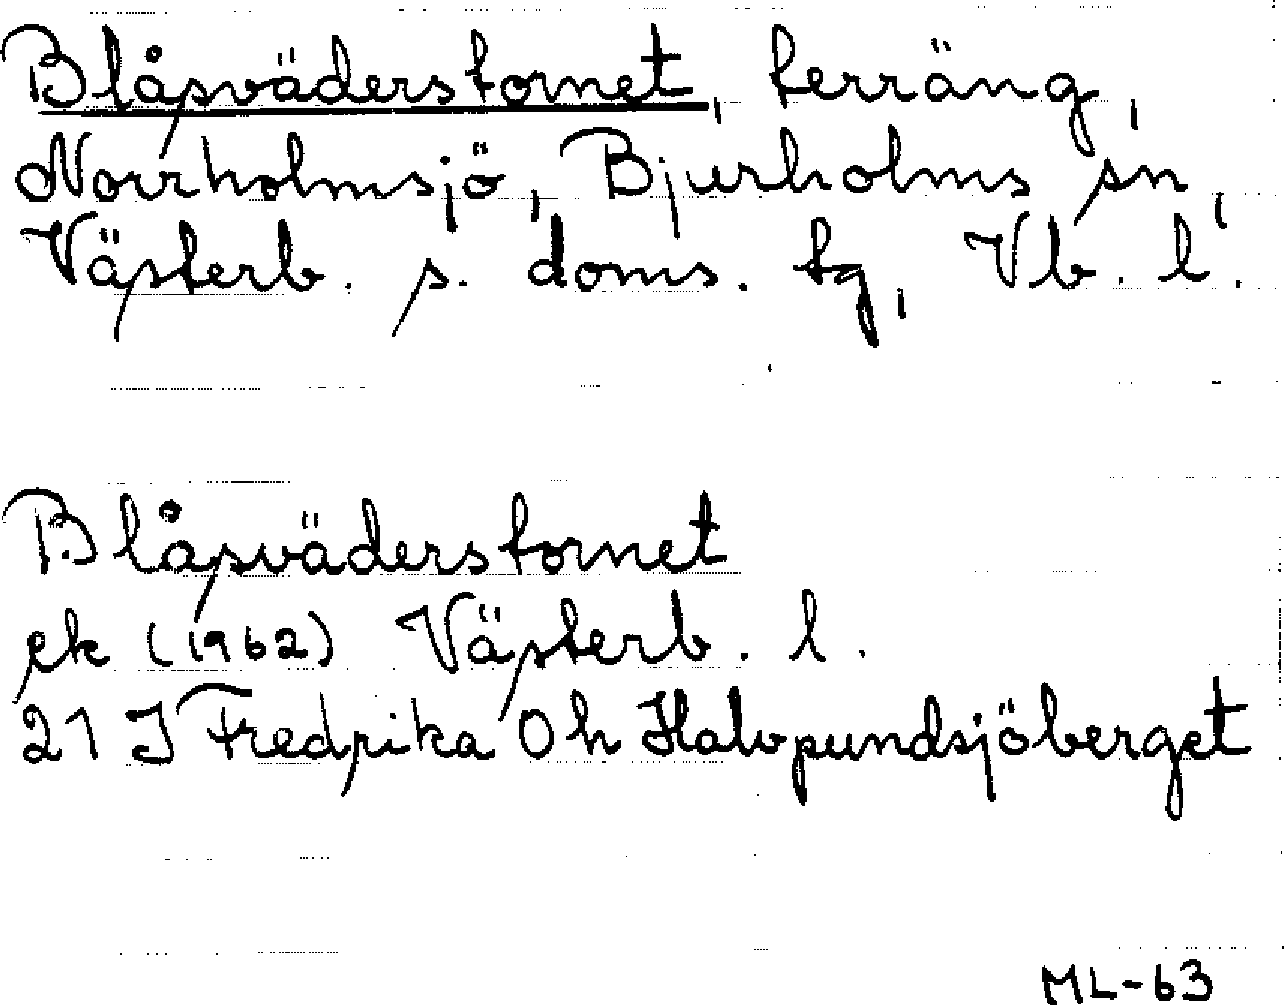 Blåsväderstornet, terräng,
Norrholmsjö, Bjurholms sn,
Västerb. s. doms. tg, Vb. l.
Blåsväderstornet
ek (1962) Västerb. l.
21 J Fredrika 0 h Halvpundsjöberget
ML-63